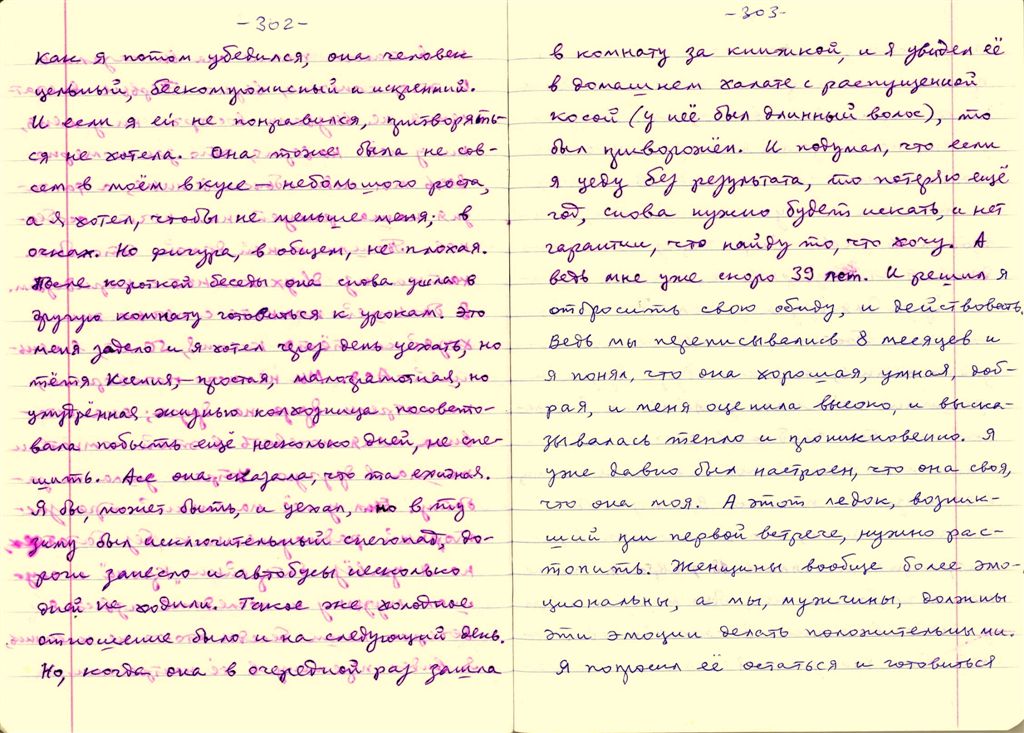 -302-
как я потом убедился, она человек
цельный, бескомпромисный и искренний.
И если я ей не понравился, притворять-
ся не хотела. Она тоже была не сов-
сем в моём вкусе — небольшого роста,
а я хотел, чтобы не меньше меня; в
очках. Но фигура, в общем, не плохая.
После короткой беседы она снова ушла в
другую комнату готовиться к урокам. Это
меня задело и я хотел через день уехать, но
тётя Ксения, — простая, малограмотная, но
умудрённая жизнью колхозница посовето-
вала побыть ещё несколько дней, не спе-
шить. Асе она сказала, что та ехидная.
Я бы, может быть, и уехал, но в ту
зиму был исключительный снегопад, до-
роги занесло и автобусы несколько
дней не ходили. Такое же холодное
отношение было и на следующий день.
Но, когда она в очередной раз зашла
-303-
в комнату за книжкой, и я увидел её
в домашнем халате с распущенной
косой (у неё был длинный волос), то
был приворожён. И подумал, что если
я уеду без результата, то потеряю ещё
год, снова нужно будет искать, и нет
гарантии, что найду то, что хочу. А
ведь мне уже скоро 39 лет. И решил я
отбросить свою обиду, и действовать.
Ведь мы переписывались 8 месяцев и
я понял, что она хорошая, умная, доб-
рая, и меня оценила высоко, и выска-
зывалась тепло и проникновенно. Я
уже давно был настроен, что она своя,
что она моя. А этот ледок, возник-
ший при первой встрече, нужно рас-
топить. Женщины вообще более эмо-
циональны, а мы, мужчины, должны
эти эмоции делать положительными.
Я попросил её остаться и готовиться